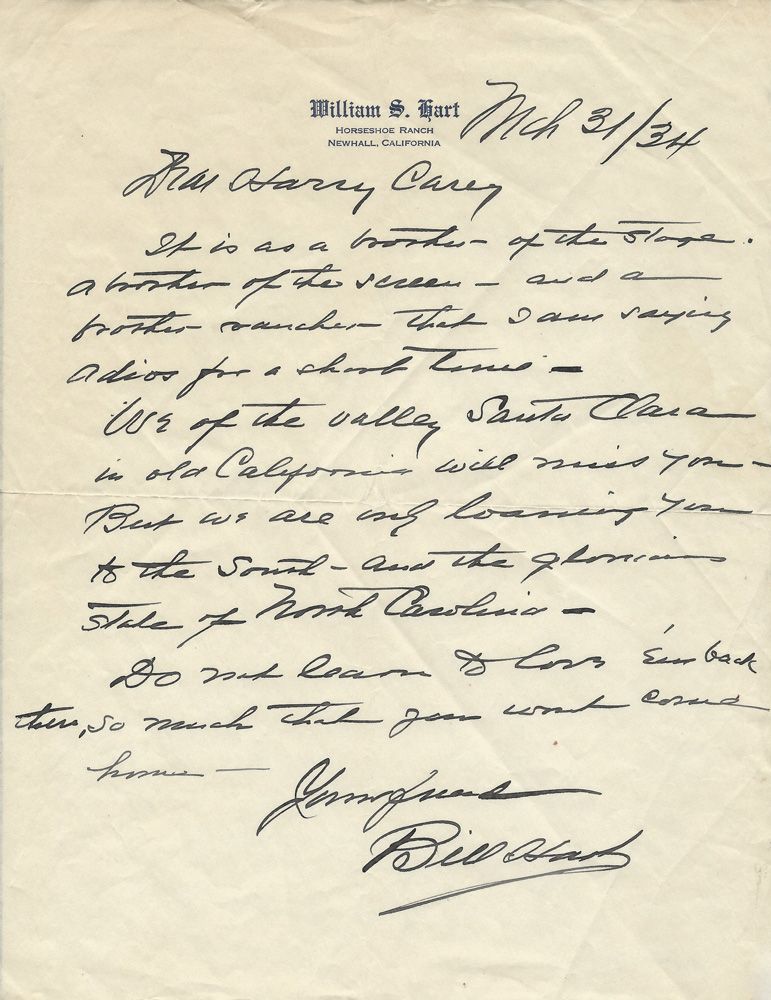 William S. Hart
HORSESHOE RANCH
NEWHALL, CALIFORNIA
Mch 31/34
Dear Harry Carey
It is as a brother of the stage.
a brother of the screen – and a
brother rancher that I am saying
adios for a short time –
We of the valley Santa Clara
in old California will miss you –
But we are only loaning you
to the South – and the glorious
state of North Carolina –
Do not learn to love 'em back
there, so much that you wont come
home –
Your friend
Bill Hart